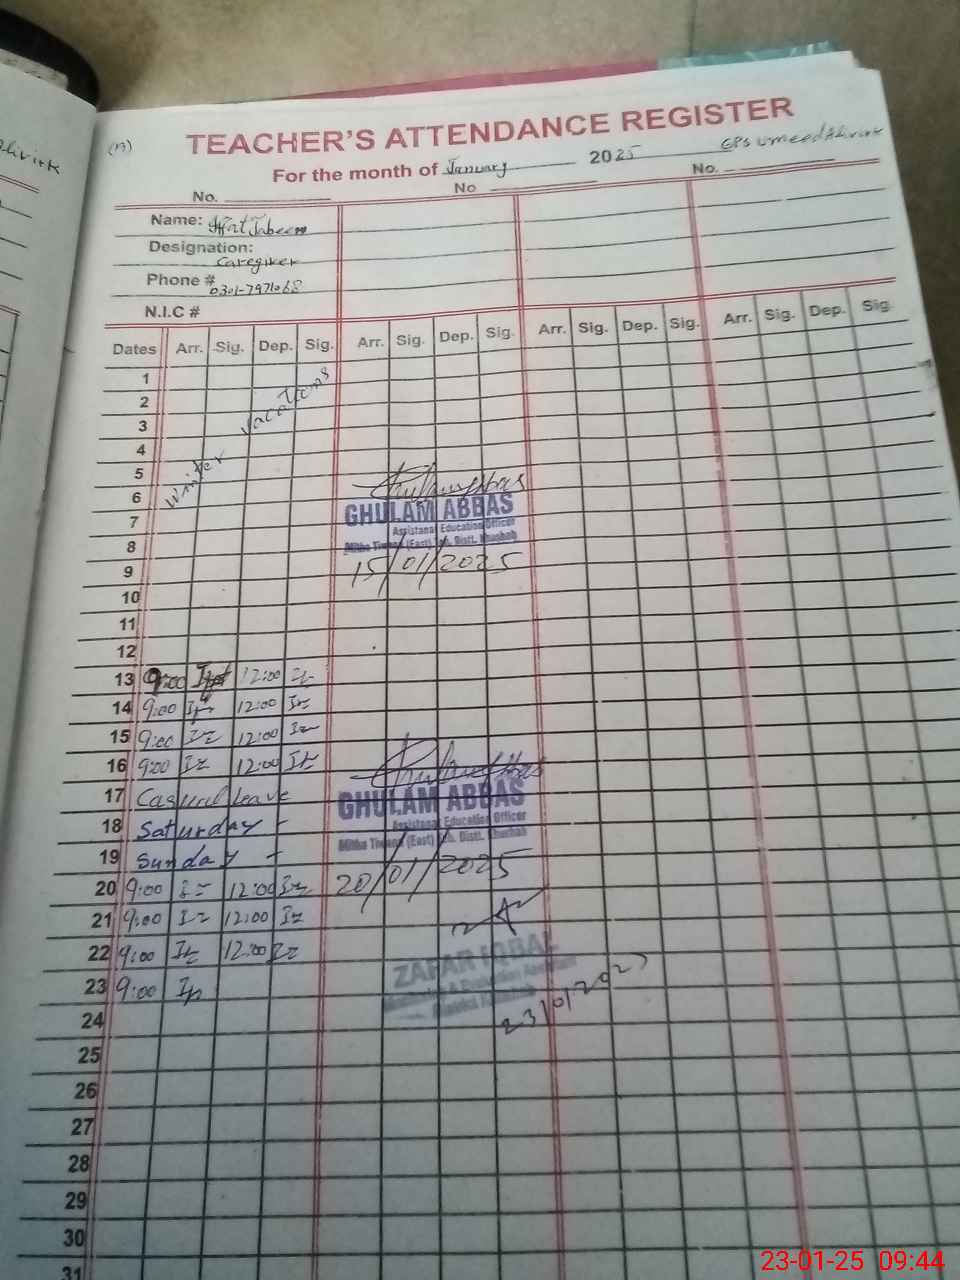 (13)
TEACHER'S ATTENDANCE REGISTER
For the month of January 2025
GPS Umeed Ali virk
No.
No
No.
Name: Iffat Jabeen
Designation:
Caregiver
Phone #
0301-7971068
N.I.C #
Dates Arr. Sig. Dep. Sig. Arr. Sig. Dep. Sig. Arr. Sig. Dep. Sig. Arr. Sig. Dep. Sig.
1
2
3
4
5
6
Winter vacations
7
GHULAM ABBAS
Assistanat Education Officer
Mitha Tiwana (East) Teh. Distt. Khushab
8
9
15/01/2025
10
11
12
13 9:00 12:00
14 9:00 12:00
15 9:00 12:00
16 9:00 12:00
17 Casual leave
GHULAM ABBAS
Assistanat Education Officer
Mitha Tiwana (East) Teh. Distt. Khushab
18 Saturday -
19 Sunday -
20 9:00 12:00
20/01/2025
21 9:00 12:00
22 9:00 12:00
ZAFAR IQBAL
Monitoring & Evaluation Assistant
23 9:00
24
25
26
27
28
29
30
31
23-01-25 09:44